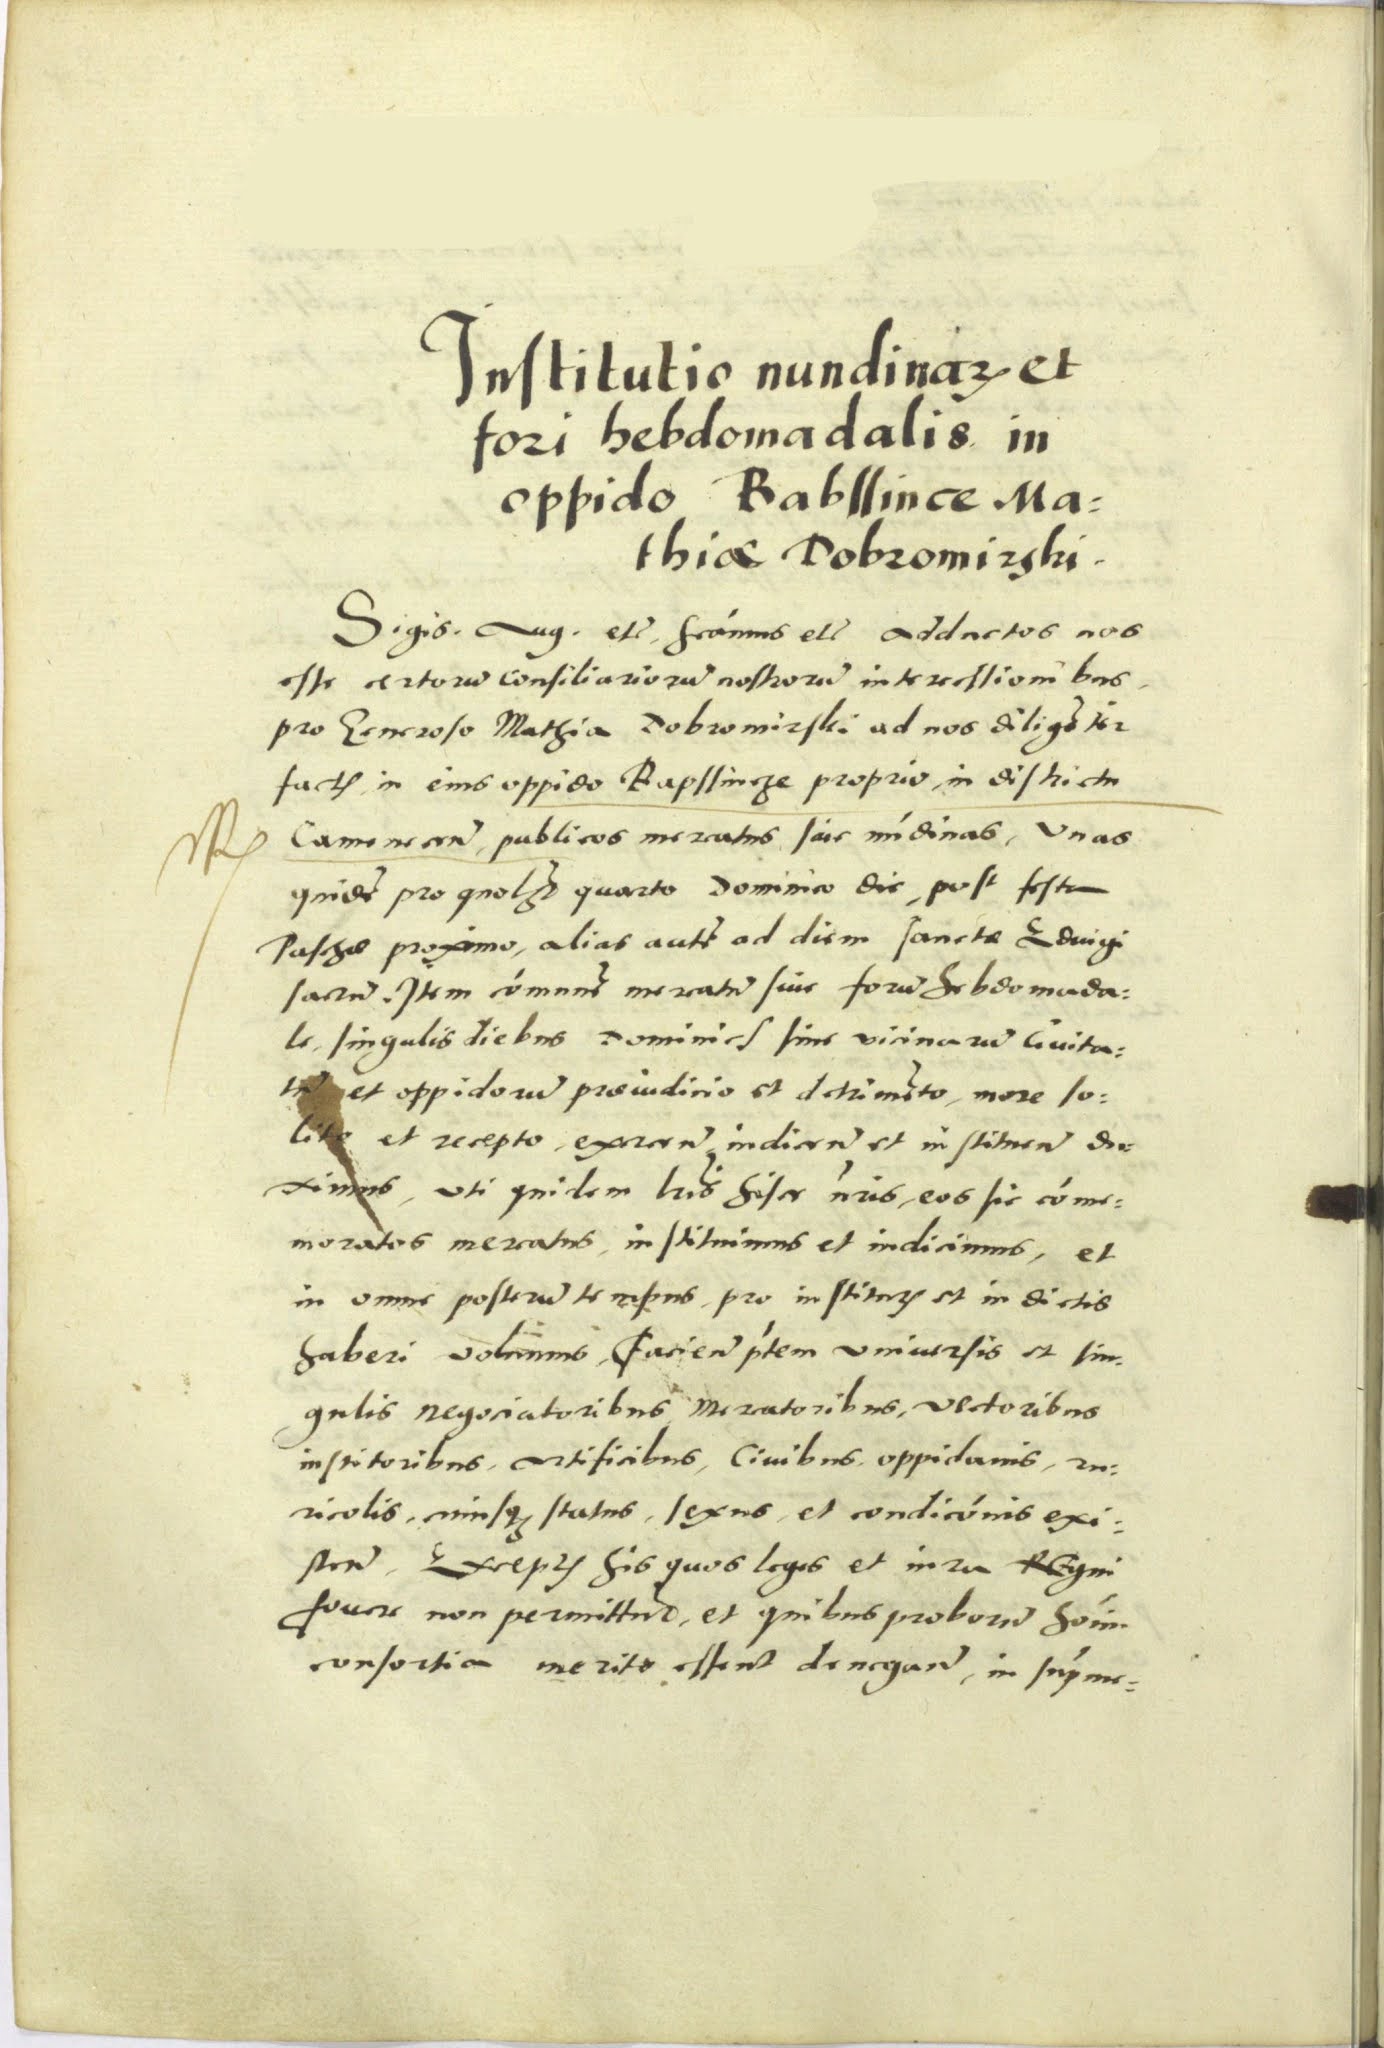 Institutio nundinaꝝ et
fori hebdomadalis in
oppido Rabssince Ma=
thiæ Dobromirski.
Sigis. Aug. etc̄. ad̄ductos nos
esse certorū Consiliariorū nostrorū intercessionibus,
pro Generoso Mathia Dobromirski ad nos diligēter
factꝭ, in eius oppido Rapssincze proprio, in districtu
Camenecen̄, publicos mercatus siue nūdinas, Vnas
quidē pro quarto Dominico die, post festū
Paschæ proximo, alias autē ad diem sanctæ Eduigi
sacrū. Item cōmunē mercatū siue forū hebdomada=
le, singulis diebus Dominicꝭ sine vicinarū Ciuita=
tū et oppidorū præiudicio et detrimēto, more so=
lito et recepto, exercen̄ indicen̄ et instituen̄ du=
ximus, vti quidem lrīs hisce nr̄is, eos sic cōme=
moratos mercatus, instituimus et indicimus, et
in omne posterū tempus, pro institutꝭ et indictis
haberi volumus, Facien̄ ptēm vniuersis et sin=
gulis negociatoribus, Mercatoribus, vectoribus
institoribus, artificibus, Ciuibus, oppidanis, ru=
ricolis, cuiusqꝫ status, sexus, et condicōnis exi=
sten̄, Exceptꝭ his quos leges et iura Regni
fouere non permittūt, et quibus proborū hoīm
consortia merito essent denegan̄, in supme=